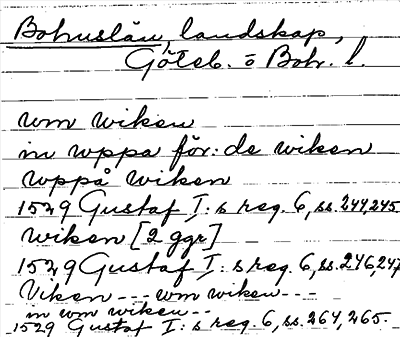 Bohuslän, landskap,
Göteb. o Boh. l.
um wiken
in uppa för: de wiken
uppå wiken
1529 Gustaf I: s reg. 6, ss. 244, 245.
Wiken [2 ggr]
1529 Gustaf I: s reg. 6, ss. 246, 247
Viken --- um wiken ---
in um wiken --
1529 Gustaf I: s reg. 6, ss. 264, 265.